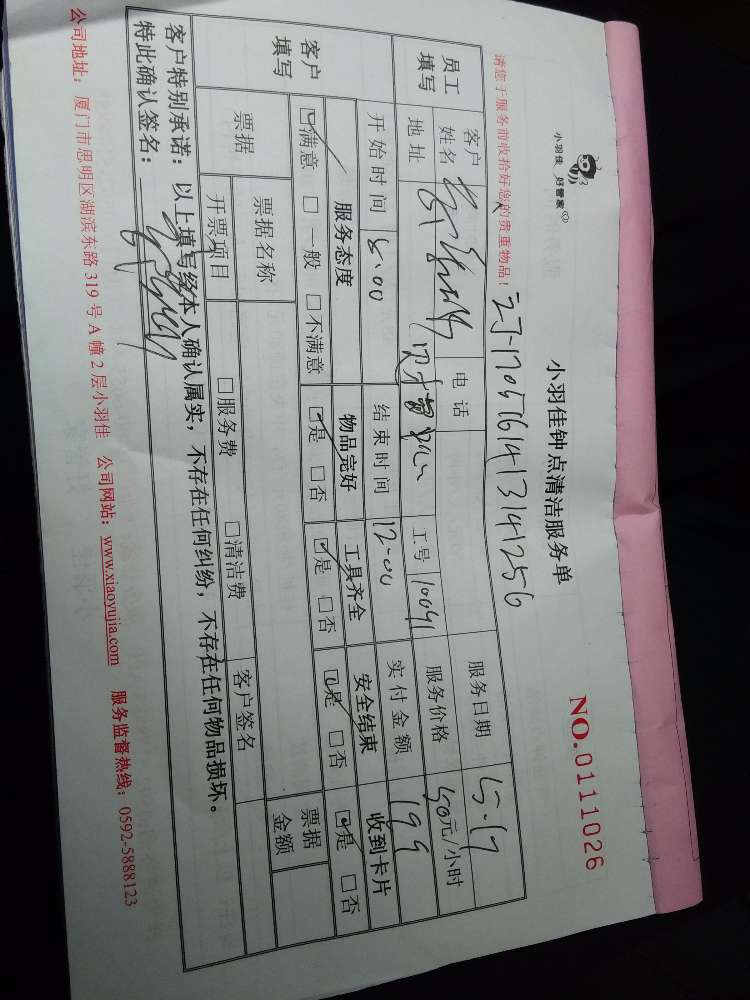 小羽佳 好管家
小羽佳钟点清洁服务单
NO.0111026
请您于服务前收拾好您的贵重物品!
ZJ-170516141314125G
员工填写 客户姓名 电话 服务日期 5.17
地址 工号 10041 服务价格 50元/小时
开始时间 结束时间 12:00 实付金额 199
客户填写 服务态度 物品完好 工具齐全 安全结束 收到卡片
☑满意 □一般 □不满意 ☑是 □否 ☑是 □否 ☑是 □否 ☑是 □否
票据 票据名称 □服务费 □清洁费 客户签名 票据金额
开票项目
客户特别承诺:以上填写经本人确认属实,不存在任何纠纷,不存在任何物品损坏。
特此确认签名:
公司地址:厦门市思明区湖滨东路 319 号 A 幢 2 层小羽佳 公司网站:www.xiaoyujia.com 服务监督热线:0592-5888123